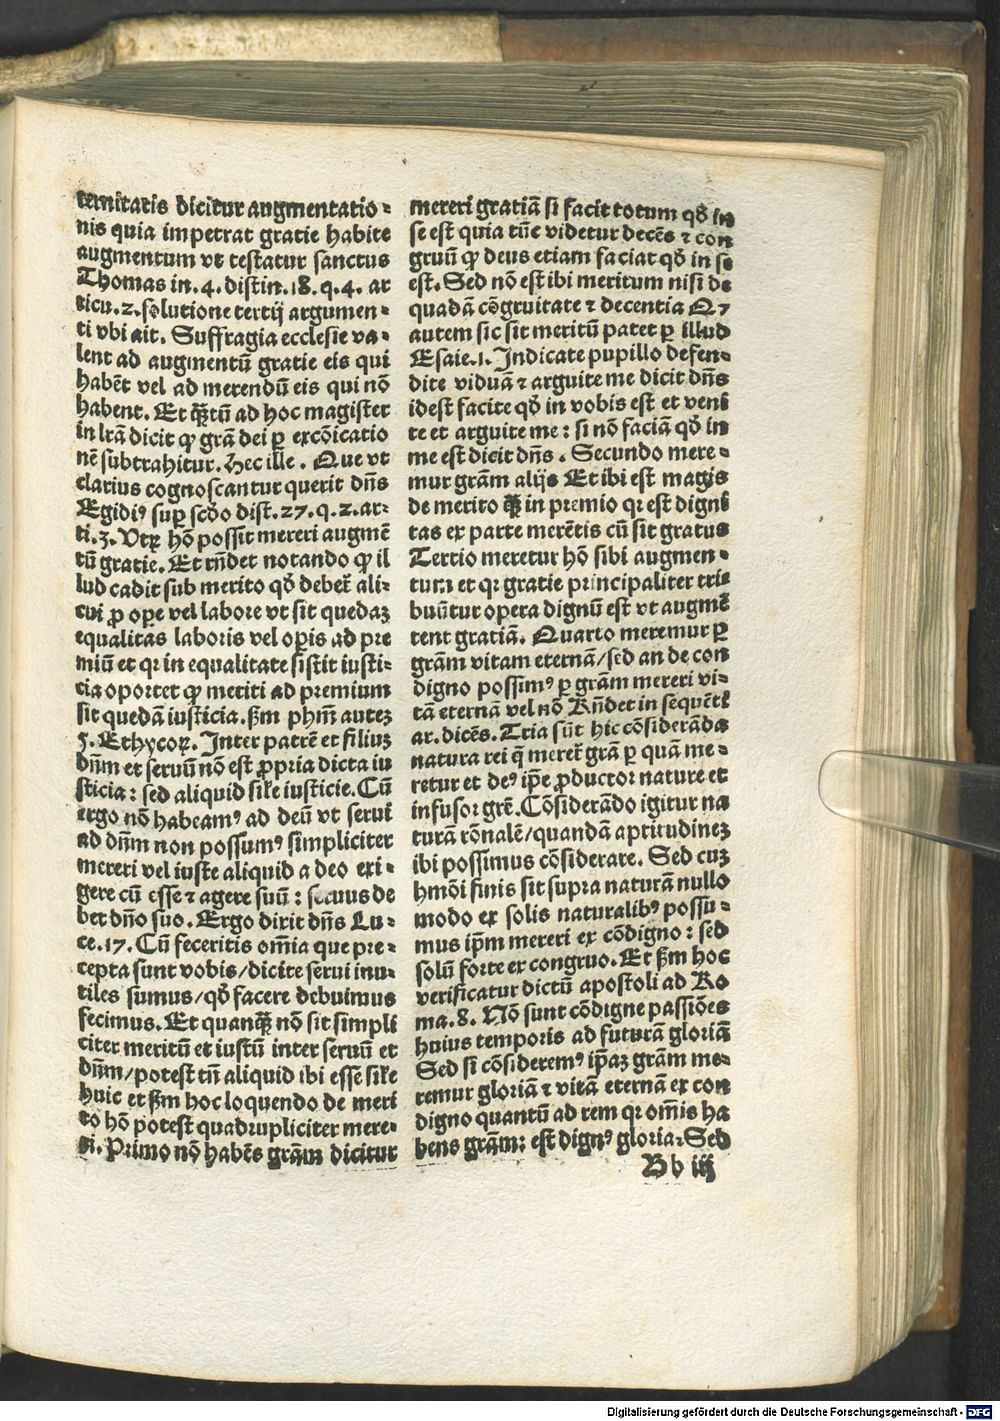 ternitatis dicitur augmentatio⸗
nis quia impetrat gratie habite
augmentum vt testatur sanctus
Thomas in.4.distin.18.q.4.ar
ticu.2.solutione tertij argumen⸗
ti vbi ait. Suffragia ecclesie va⸗
lent ad augmentū gratie eis qui
habēt vel ad merendū eis qui nō
habent. Et ꝙ̄tū ad hoc magister
in lrā dicit ꝙ grā dei ꝑ excōicatio
nē subtrahitur. Hec ille. Que vt
clarius cognoscantur querit dn̄s
Egidiꝰ suꝑ scd̓o dist.27.q.2.ar⸗
ti.3. Vtrꝝ hō possit mereri augmē
tū gratie. Et rn̄det notando ꝙ il
lud cadit sub merito qd̓ debet̄ ali⸗
cui ꝓ oꝑe vel labore vt sit quedaꝫ
equalitas laboris vel oꝑis ad pre
miū et qꝛ in equalitate sistit iusti⸗
cia oportet ꝙ meriti ad premium
sit quedā iusticia. ẜm phm̄ auteꝫ
5. Ethycoꝝ. Inter patrē et filiuꝫ
dn̄m et seruū nō est ꝓpria dicta iu
sticia: sed aliquid sil̓e iusticie. Cū
ergo nō habeamꝰ ad deū vt serui
ad dn̄m non possumꝰ simpliciter
mereri vel iuste aliquid a deo exi⸗
gere cū esse ⁊ agere suū: secus de
bet dn̄o suo. Ergo dixit dn̄s Lu⸗
ce.17. Cū feceritis om̄ia que pre⸗
cepta sunt vobis/dicite serui inu⸗
tiles sumus/qd̓ facere debuimus
fecimus. Et quanꝙ̄ nō sit simpli
citer meritū et iustū inter seruū et
dn̄m/potest tn̄ aliquid ibi esse sil̓e
huic et ẜm hoc loquendo de meri
to hō potest quadrupliciter mere⸗
ri. Primo nō habēs grām dicitur
mereri gratiā si facit totum qd̓ in
se est quia tūc videtur decēs ⁊ con
gruū ꝙ deus etiam faciat qd̓ in se
est. Sed nō est ibi meritum nisi de
quadā cōgruitate ⁊ decentia Qꝫ
autem sic sit meritū patet ꝑ illud
Esaie.1. Indicate pupillo defen⸗
dite viduā ⁊ arguite me dicit dn̄s
idest facite qd̓ in vobis est et veni
te et arguite me: si nō faciā qd̓ in
me est dicit dn̄s. Secundo mere⸗
mur grām alijs Et ibi est magis
de merito ꝙ̄ in premio qꝛ est digni
tas ex parte merētis cū sit gratus
Tertio meretur hō sibi augmen⸗
tum et qꝛ gratie principaliter tri⸗
buūtur opera dignū est vt augmē
tent gratiā. Quarto meremur ꝑ
grām vitam eternā/sed an de con
digno possimꝰ ꝑ grām mereri vi⸗
tā eternā vel nō Rn̄det in sequēti
ar. dicēs. Tria sūt hic cōsiderāda
natura rei q̄ meret̄ grā ꝑ quā me⸗
retur et deꝰ ip̄e ꝓductor nature et
infusor grē. Cōsiderādo igitur na
turā rōnalē/quandā aptitudineꝫ
ibi possimus cōsiderare. Sed cuꝫ
hmōi finis sit supra naturā nullo
modo ex solis naturalibꝰ possu⸗
mus ip̄m mereri ex cōdigno: sed
solū forte ex congruo. Et ẜm hoc
verificatur dictū apostoli ad Ro
ma.8. Nō sunt cōdigne passiōes
huius temporis ad futurā gloriā
Sed si cōsideremꝰ ip̄aꝫ grām me⸗
remur gloriā ⁊ vitā eternā ex con
digno quantū ad rem qꝛ om̄is ha
bens grām: est dignꝰ gloria: Sed
Bb iij
Digitalisierung gefördert durch die Deutsche Forschungsgemeinschaft - DFG